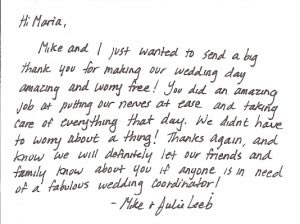 Hi Maria,
Mike and I just wanted to send a big
thank you for making our wedding day
amazing and worry free! You did an amazing
job at putting our nerves at ease and taking
care of everything that day. We didn't have
to worry about a thing! Thanks again, and
know we will definitely let our friends and
family know about you if anyone is in need
of a fabulous wedding coordinator!
- Mike + Julie Loeb